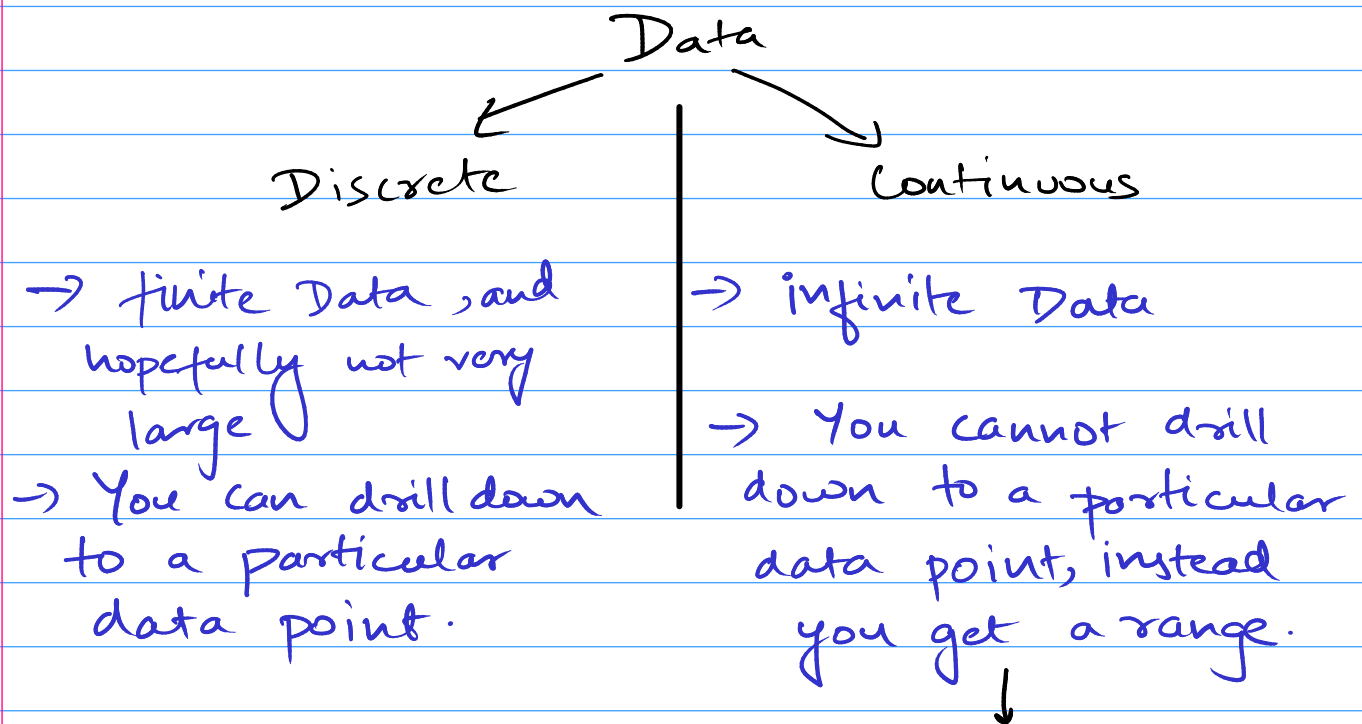 Data
Discrete
Continuous
→ finite Data, and
hopefully not very
large
→ You can drill down
to a particular
data point.
→ infinite Data
→ You cannot drill
down to a particular
data point, instead
you get a range.